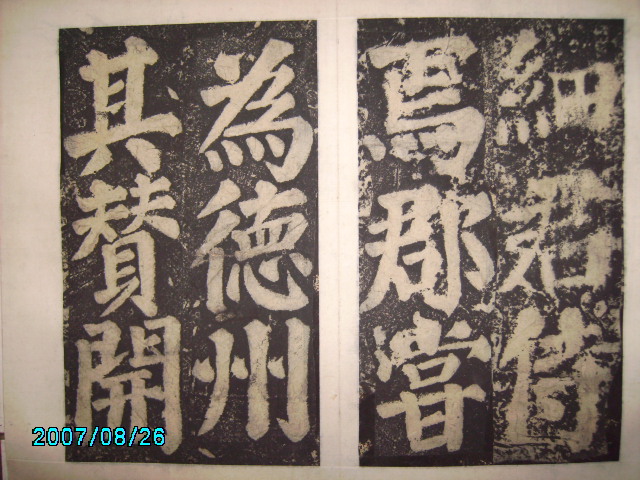 細君侍
焉郡甞
為德州
其賛開
2007/08/26